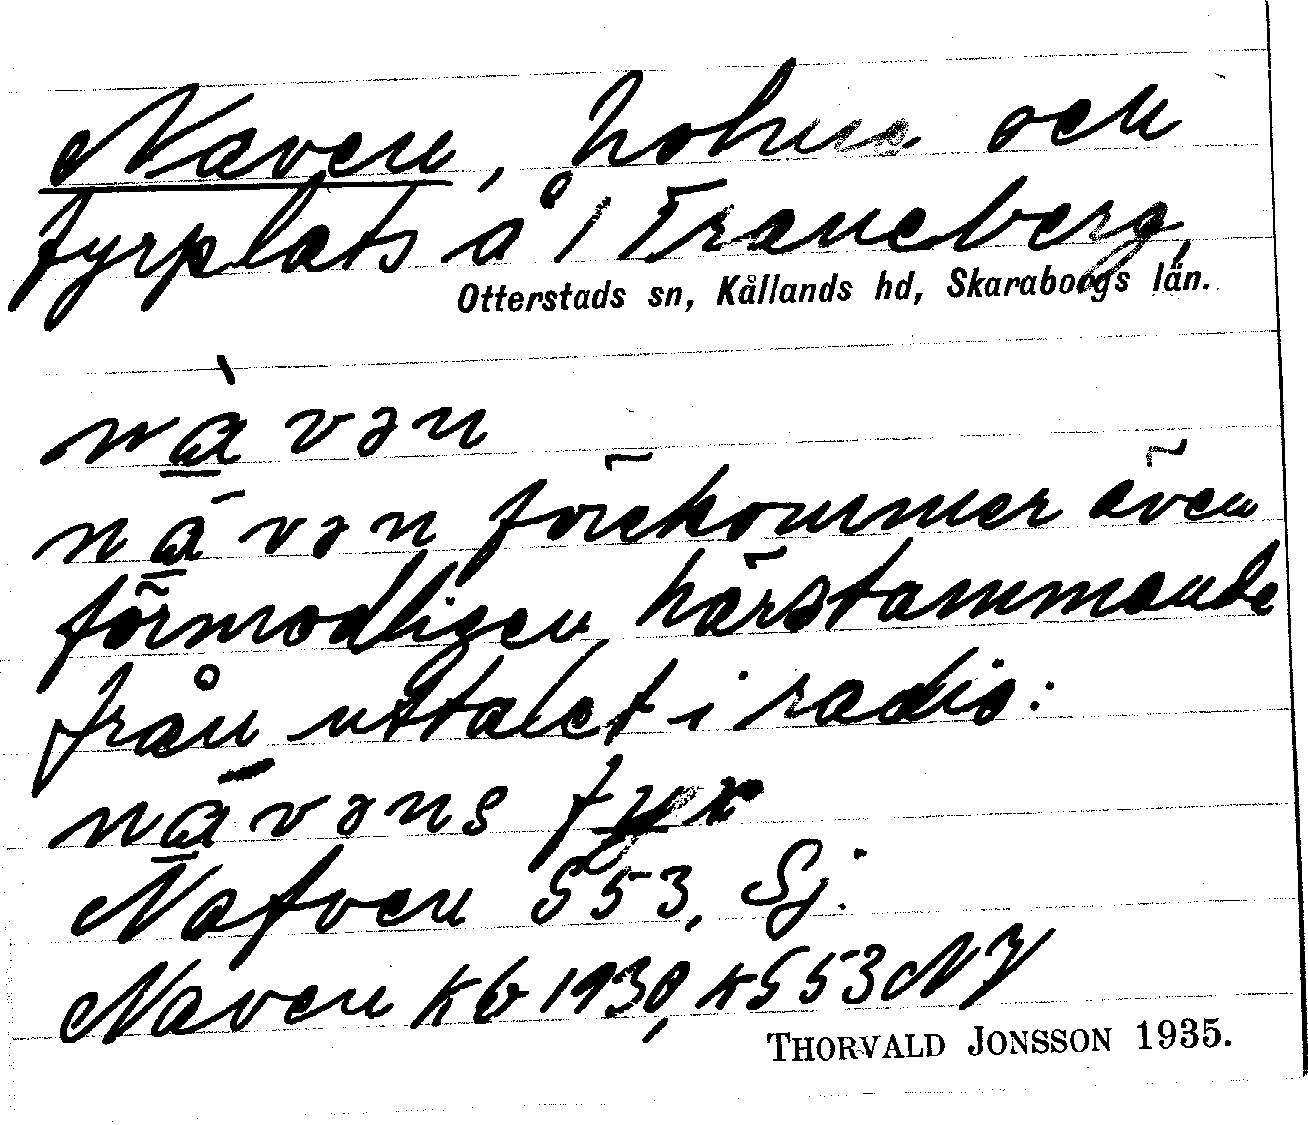 Naven, holme och
fyrplats å 1/1 Traneberg,
Otterstads sn, Kållands hd, Skaraborgs län.
nàvən
nāvən förekommer även
förmodligen härstammande
från uttalet i radio:
nāvəns fyr
Nafven S53, Sj.
Naven Kb 1930, kS53 NV
THORVALD JONSSON 1935.